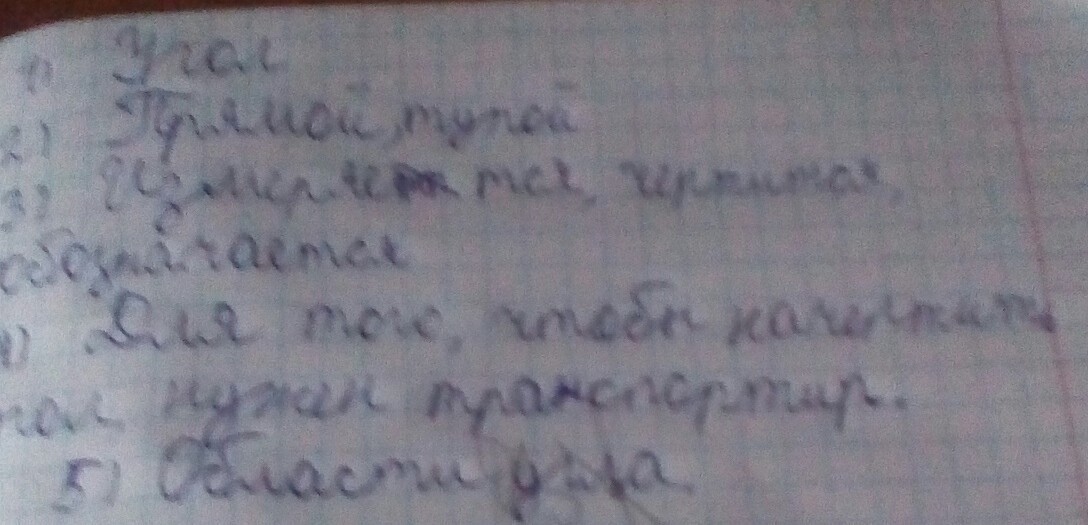 1) Угол
2) Прямой, тупой
3) Измеряется, чертится,
обозначается
4) Для того, чтобы начертить
гол нужен транспортир.
5) Области угла.